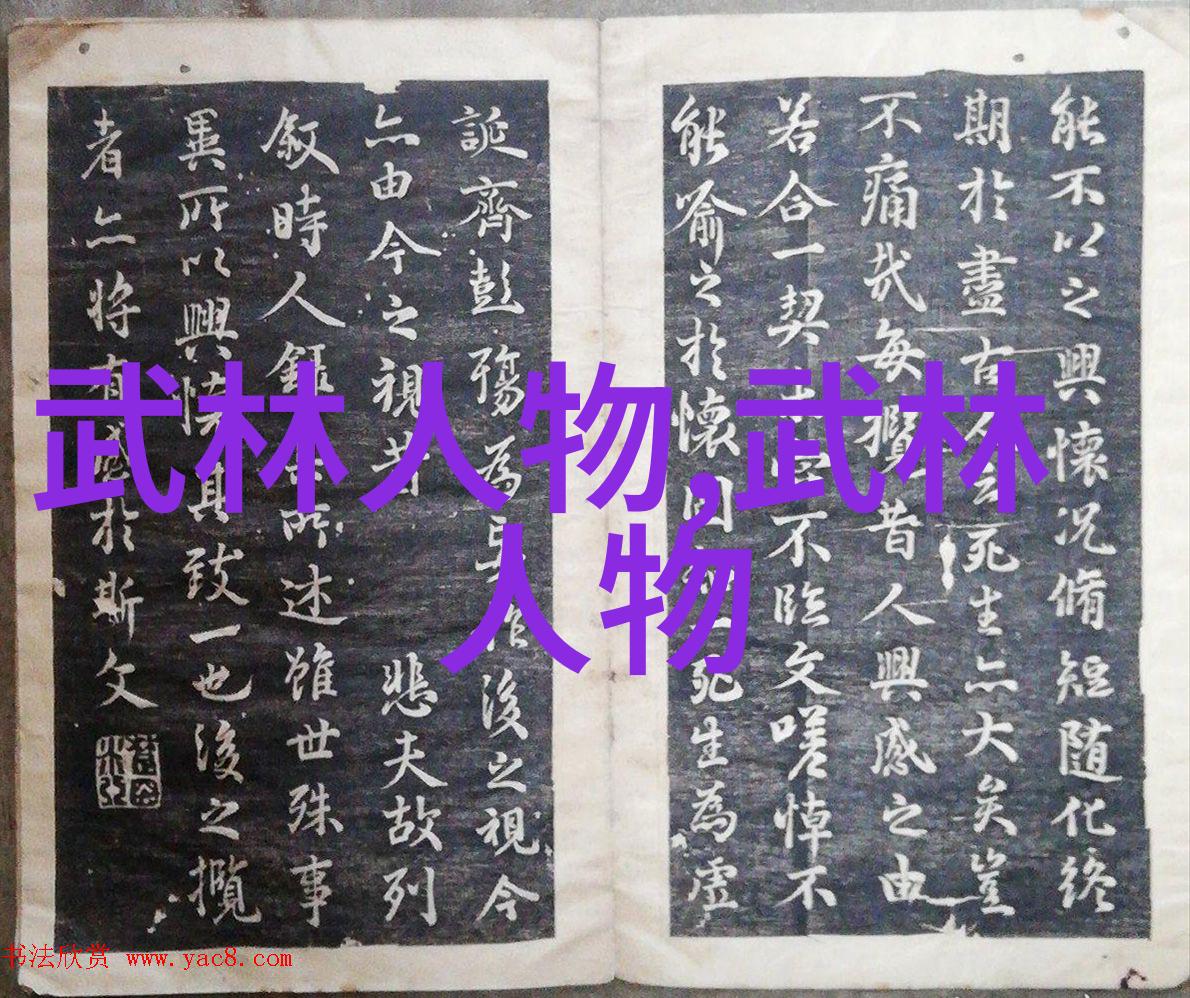 能不以之興懷况脩短随化終
期於盡古人云死生亦大矣豈
不痛㢤每攬昔人興感之由
若合一契不臨文嗟悼不
能喻之於懷固一死生為虚
誕齊彭殤為妄作後之視今
亦由今之視昔悲夫故列
叙時人録其所述雖世殊事
異所以興懷其致一也後之攬
者亦将有感於斯文
武林人物,武林
人物
书法欣赏 www.yac8.com